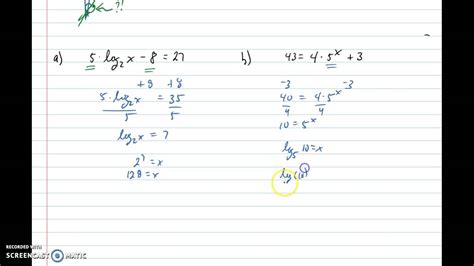 ?!
a) 5·log₂x - 8 = 27
+8 +8
5·log₂x = 35
5 5
log₂x = 7
2⁷ = x
128 = x
b) 43 = 4·5ˣ + 3
-3 -3
40 = 4·5ˣ
4 4
10 = 5ˣ
log₅ 10 = x
log(10)
RECORDED WITH
SCREENCAST MATIC